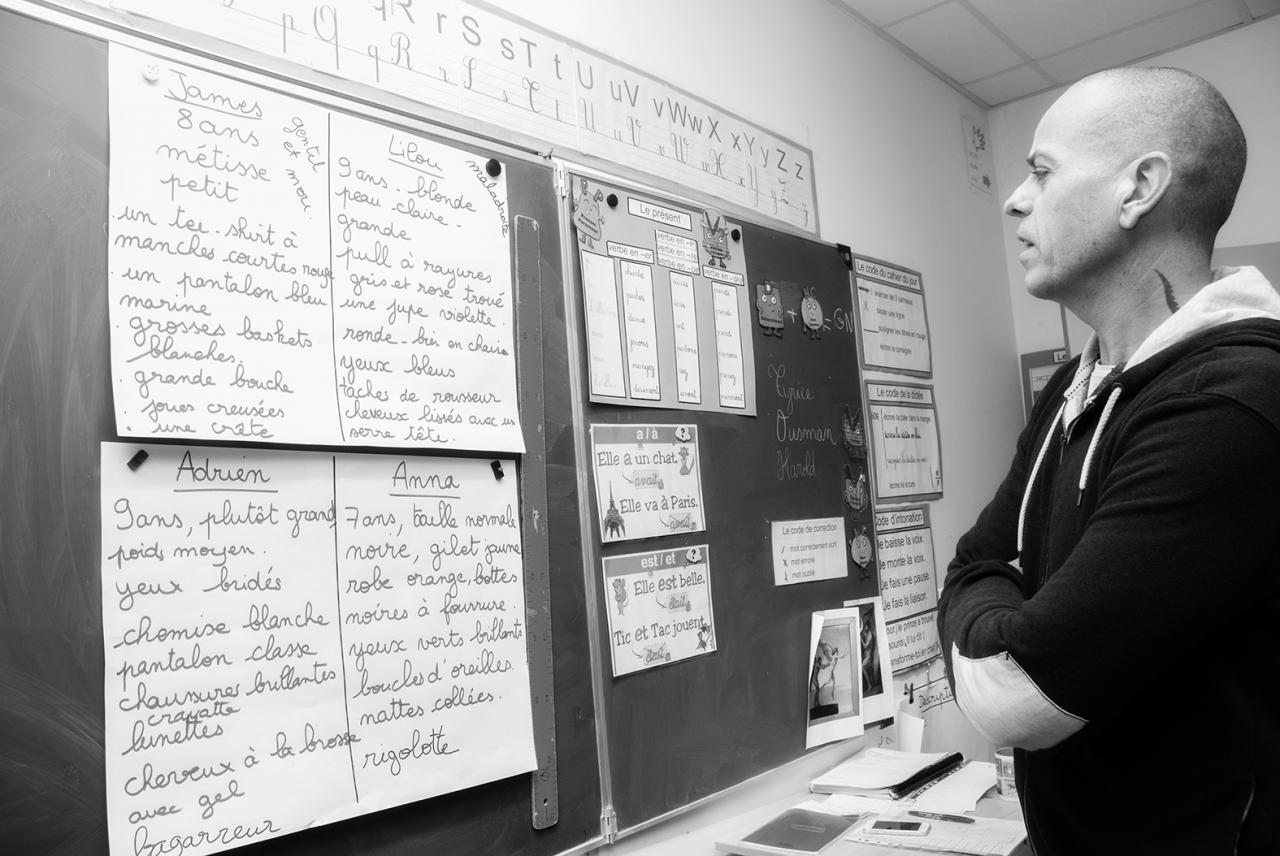 p Q q R r S s T t U u V v W w X x Y y Z z
James
8 ans
métisse
petit
gentil
et mou.
un tee-shirt à
manches courtes rouge
un pantalon bleu
marine
grosses baskets
blanches.
grande bouche
joues creusées
une crête
Lilou
maladroite
9 ans - blonde
peau claire -
grande
pull à rayures
gris et rose troué
une jupe violette.
ronde - bien en chair
yeux bleus
tâches de rousseur
cheveux lissés avec un
serre tête.
Adrien
9 ans, plutôt grand
poids moyen.
yeux bridés
chemise blanche
pantalon classe
chaussures brillantes
cravatte
lunettes
cheveux à la brosse
avec gel
bagarreur
Anna
7 ans, taille normale
noire, gilet jaune
robe orange, bottes
noires à fourrure.
yeux verts brillants
boucles d'oreilles.
nattes collées.
rigolotte
Le présent
verbe en -er
verbe en -ir
verbe en -re
a / à
Elle a un chat.
avait
Elle va à Paris.
avait
est / et
Elle est belle.
était
Tic et Tac jouent.
était
+ = GN
Ousman
Harold
Le code de correction
mot correctement écrit
mot erroné
mot oublié
Le code du cahier du jour
sauter une ligne
souligner les titres en rouge
écrire la consigne
Le code de la dictée
écrire la date dans la marge
écrire le score
Code d'intonation
Je baisse la voix.
Je monte la voix.
Je fais une pause.
Je fais la liaison.